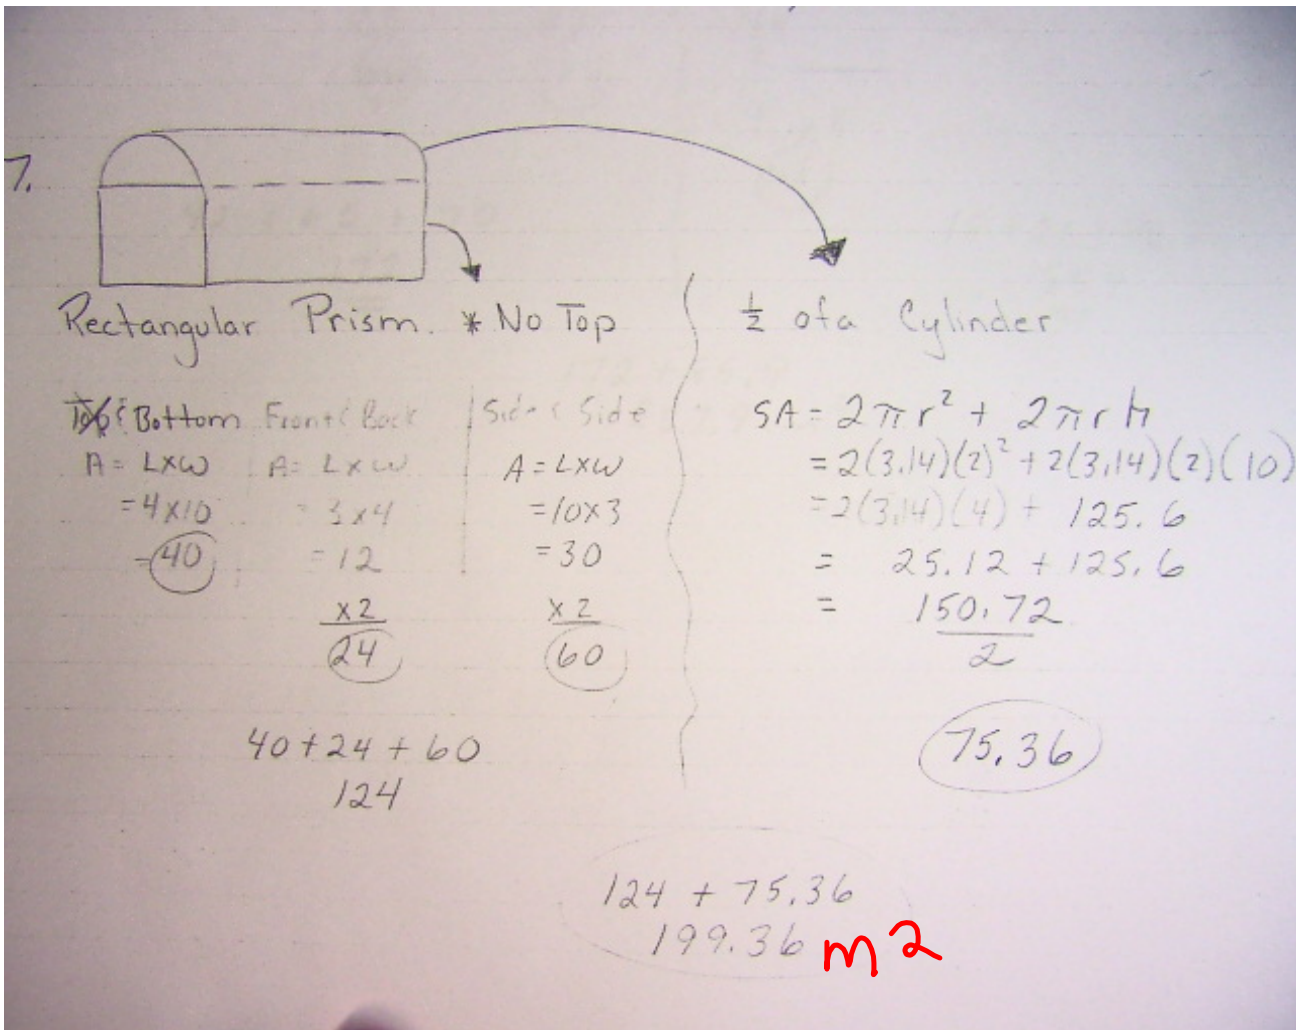 7.
Rectangular Prism. * No Top
Top & Bottom
A = L×W
= 4×10
= 40
Front & Back
A = L×W
= 3×4
= 12
×2
24
Side & Side
A = L×W
= 10×3
= 30
×2
60
40 + 24 + 60
124
½ of a Cylinder
SA = 2πr² + 2πrh
= 2(3.14)(2)² + 2(3.14)(2)(10)
= 2(3.14)(4) + 125.6
= 25.12 + 125.6
= 150.72
2
75.36
124 + 75.36
199.36 m2